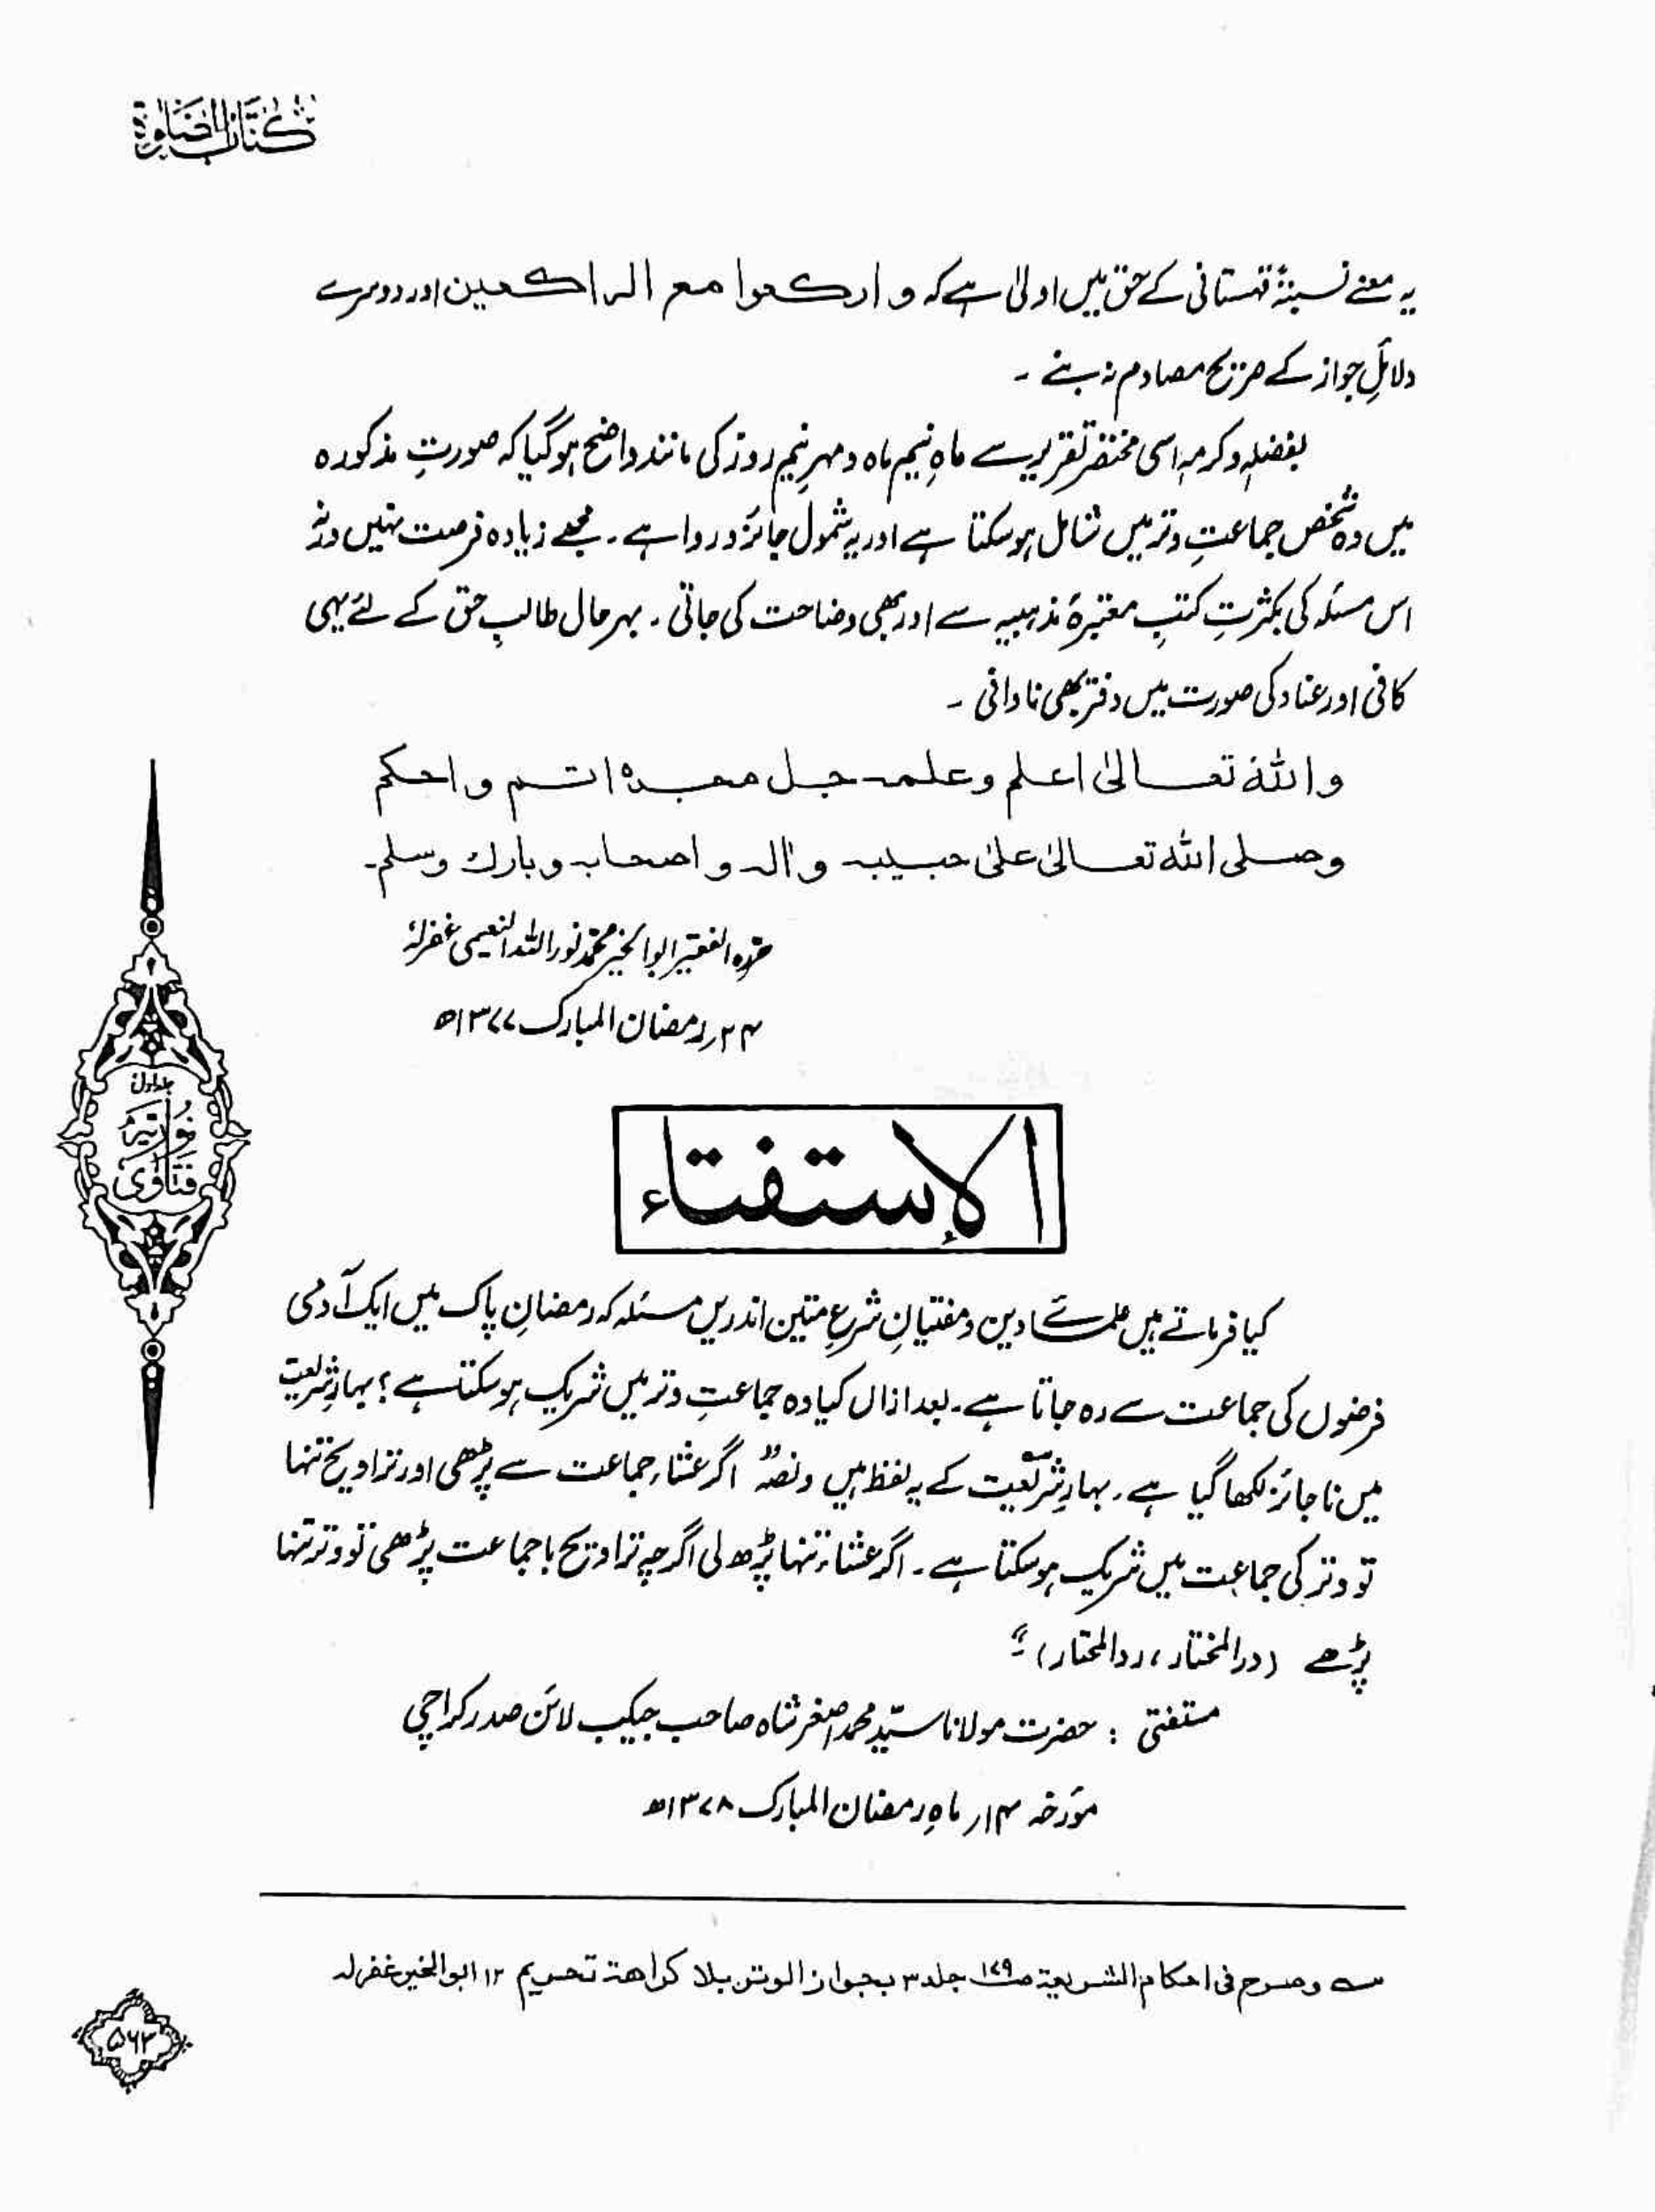 کتاب الصلوٰۃ
یہ معنے نسبۃً قہستانی کے حق میں اولیٰ ہے کہ وارکعوا مع الراکعین اور دوسرے
دلائلِ جواز کے صریح مصادم نہ بنے ۔
بفضلہٖ وکرمہٖ اسی مختصر تقریر سے ماہِ نیم ماہ و مہرِ نیم روز کی مانند واضح ہوگیا کہ صورتِ مذکورہ
میں وہ شخص جماعتِ وتر میں شامل ہوسکتا ہے اور یہ شمول جائز و روا ہے ۔ مجھے زیادہ فرصت نہیں ورنہ
اس مسئلہ کی بکثرتِ کتبِ معتبرۂ مذہبیہ سے اور بھی وضاحت کی جاتی ۔ بہرحال طالبِ حق کے لئے یہی
کافی اور عناد کی صورت میں دفتر بھی نادانی ۔
واللہ تعالیٰ اعلم وعلمہ جل مجدہ اتم واحکم
وصلی اللہ تعالیٰ علیٰ حبیبہ واٰلہ واصحابہ وبارك وسلم۔
حررہ الفقیر ابوالخیر محمد نور اللہ النعیمی غفرلہٗ
۲۴؍رمضان المبارک ۱۳۷۷ھ
جلد اول
نوریہ
فتاوٰی
الاستفتاء
کیا فرماتے ہیں علمائے دین و مفتیانِ شرعِ متین اندریں مسئلہ کہ رمضانِ پاک میں ایک آدمی
فرضوں کی جماعت سے رہ جاتا ہے۔ بعد ازاں کیا وہ جماعتِ وتر میں شریک ہوسکتا ہے؟ بہارِ شریعت
میں ناجائز لکھا گیا ہے۔ بہارِ شریعت کے یہ لفظ ہیں ونصہٗ "اگر عشاء جماعت سے پڑھی اور تراویح تنہا
تو وتر کی جماعت میں شریک ہوسکتا ہے ۔ اگر عشاء تنہا پڑھ لی اگرچہ تراویح باجماعت پڑھی تو وتر تنہا
پڑھے (درالمختار، ردالمحتار)"؟
مستفتی : حضرت مولانا سیّد محمد اصغر شاہ صاحب جیکب لائن صدر کراچی
مؤرخہ ۱۴؍ ماہِ رمضان المبارک ۱۳۷۸ھ
؎ وصرح فی احکام الشریعۃ ص۱۷۹ جلد ۳ بجواز الوتر بلا کراھۃ تحریم ۱۲ ابوالخیر غفرلہ
۵۶۳